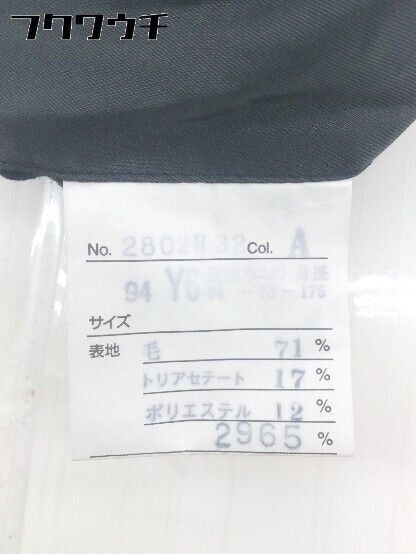 フクワウチ
No. 2802H 32 Col. A
94 Y6 身長
-78-175
サイズ
表地 毛 71 %
トリアセテート 17 %
ポリエステル 12 %
2965 %